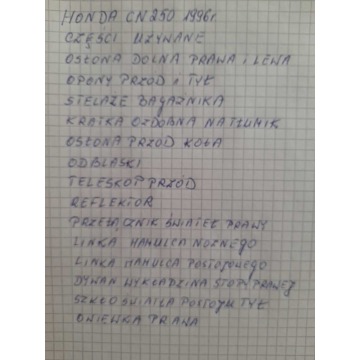 HONDA CN250 1996r
CZĘŚCI UŻYWANE
OSŁONA DOLNA PRAWA i LEWA
OPONY PRZÓD i TYŁ
STELAŻE BAGAŻNIKA
KRATKA OZDOBNA NA TŁUMIK
OSŁONA PRZÓD KOŁA
ODBLASKI
TELESKOP PRZÓD
REFLEKTOR
PRZEŁĄCZNIK ŚWIATEŁ PRAWY
LINKA HAMULCA NOŻNEGO
LINKA HAMULCA POSTOJOWEGO
DYWAN WYKŁADZINA STOPY PRAWEJ
SZKŁO ŚWIATŁA POSTOJU TYŁ
OWIEWKA PRAWA